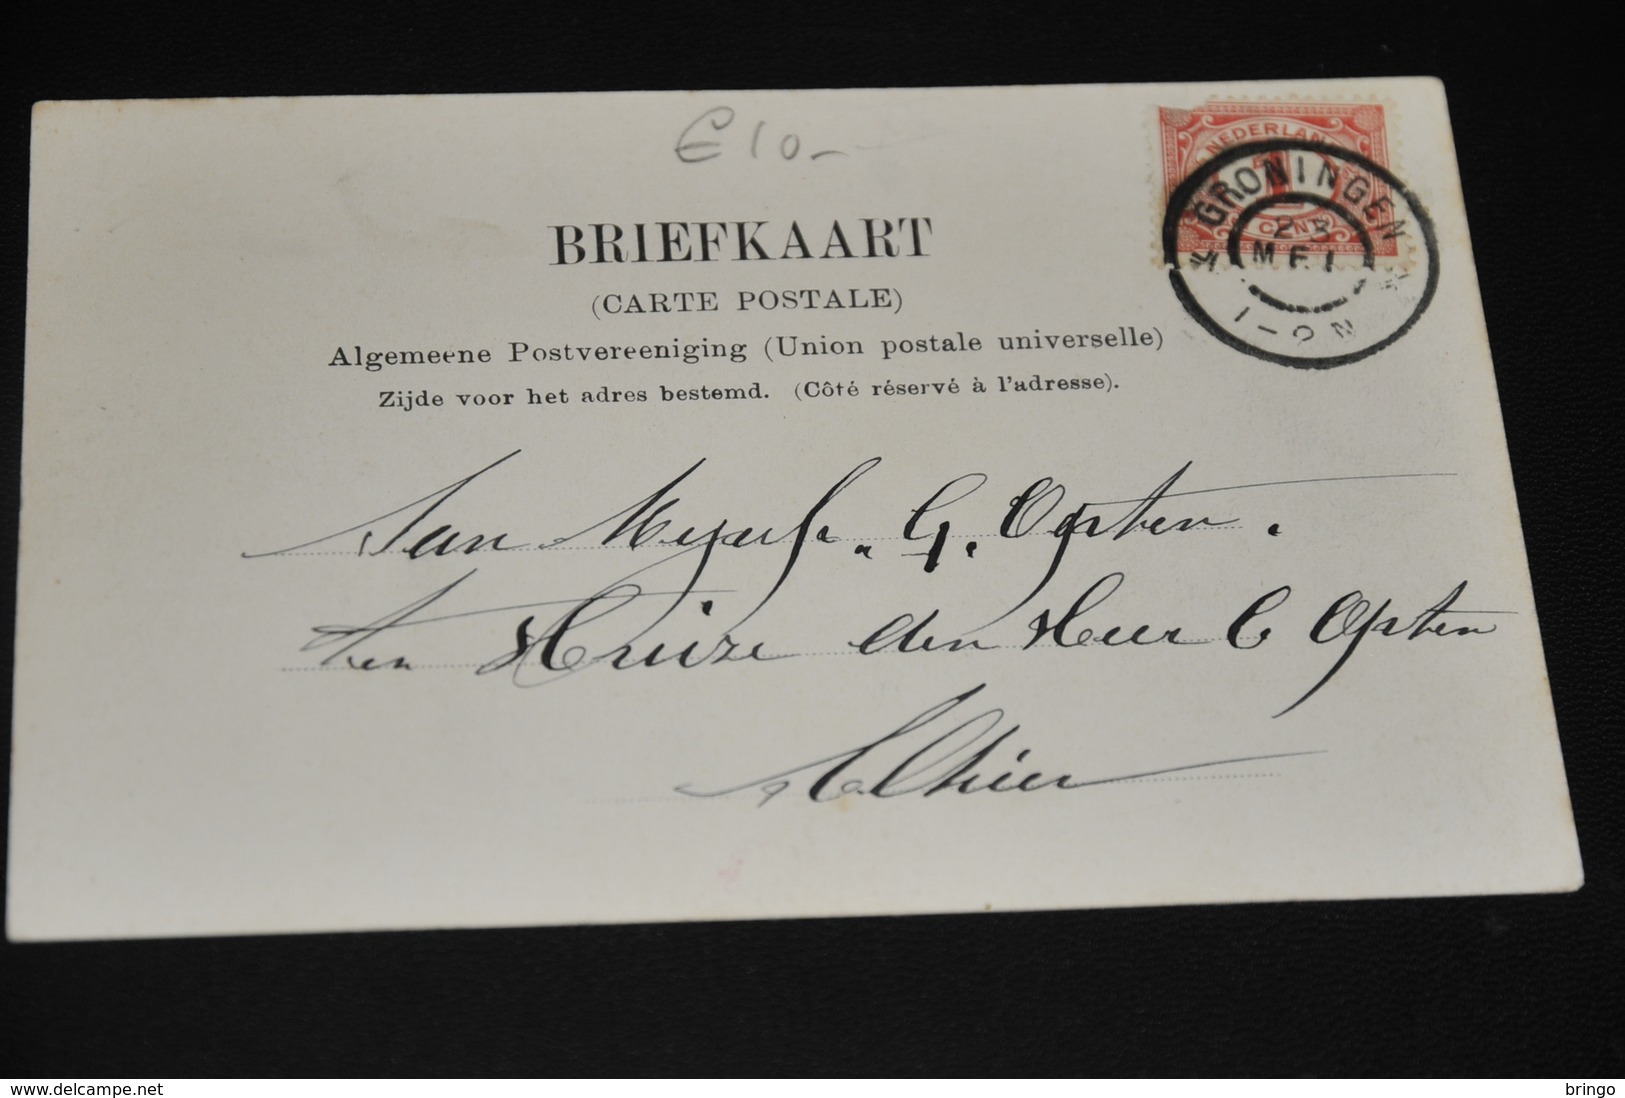 € 10-
NEDERLAND
1
CENT
GRONINGEN
MEI
BRIEFKAART
(CARTE POSTALE)
Algemeene Postvereeniging (Union postale universelle)
Zijde voor het adres bestemd. (Côté réservé à l'adresse).
Aan Mejuf. G. Opten.
ten Huize den Heer C Opten
Alhier
www.delcampe.net
bringo